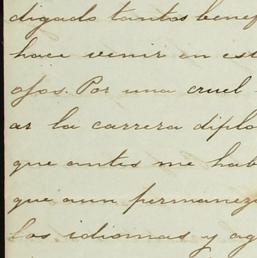 digado tantos benef
hace venir en est
ojos. Por una cruel
ar la carrera diplo
que antes me hab
que aun permanez
los idiomas y ag